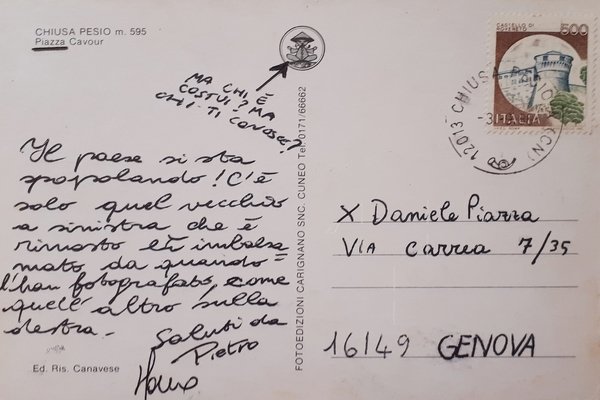 CHIUSA PESIO m. 595
Piazza Cavour
MA CHI È
COSTUI? MA
CHI-TI CONOSCE?
Il paese si sta
spopolando! C'è
solo quel vecchio
a sinistra che è
rimasto lì imbalsa
mato, da quando=
l'han fotografato, come
quell'altro sulla
destra.
Saluti da
Pietro
Ed. Ris. Canavese
FOTOEDIZIONI CARIGNANO SNC. CUNEO Tel. 0171/66662
CASTELLO DI
ROVERETO
500
ITALIA
12013 CHIUSA PESIO (CN)
X Daniele Piazza
VIA Carrea 7/35
16149 GENOVA